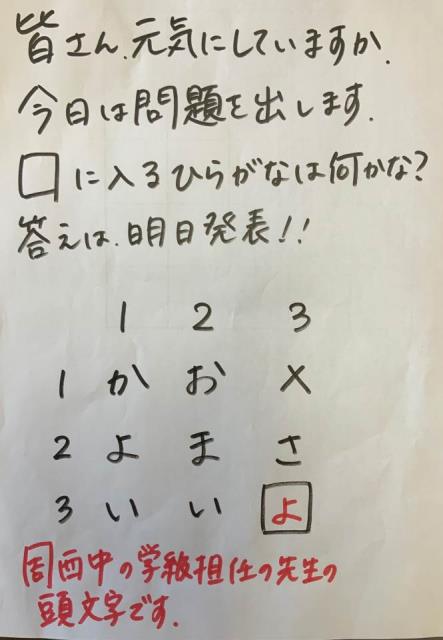 皆さん、元気にしていますか。
今日は問題を出します。
□に入るひらがなは何かな?
答えは、明日発表!!
1 2 3
1 か お ×
2 よ ま さ
3 い い よ
周西中の学級担任の先生の
頭文字です。